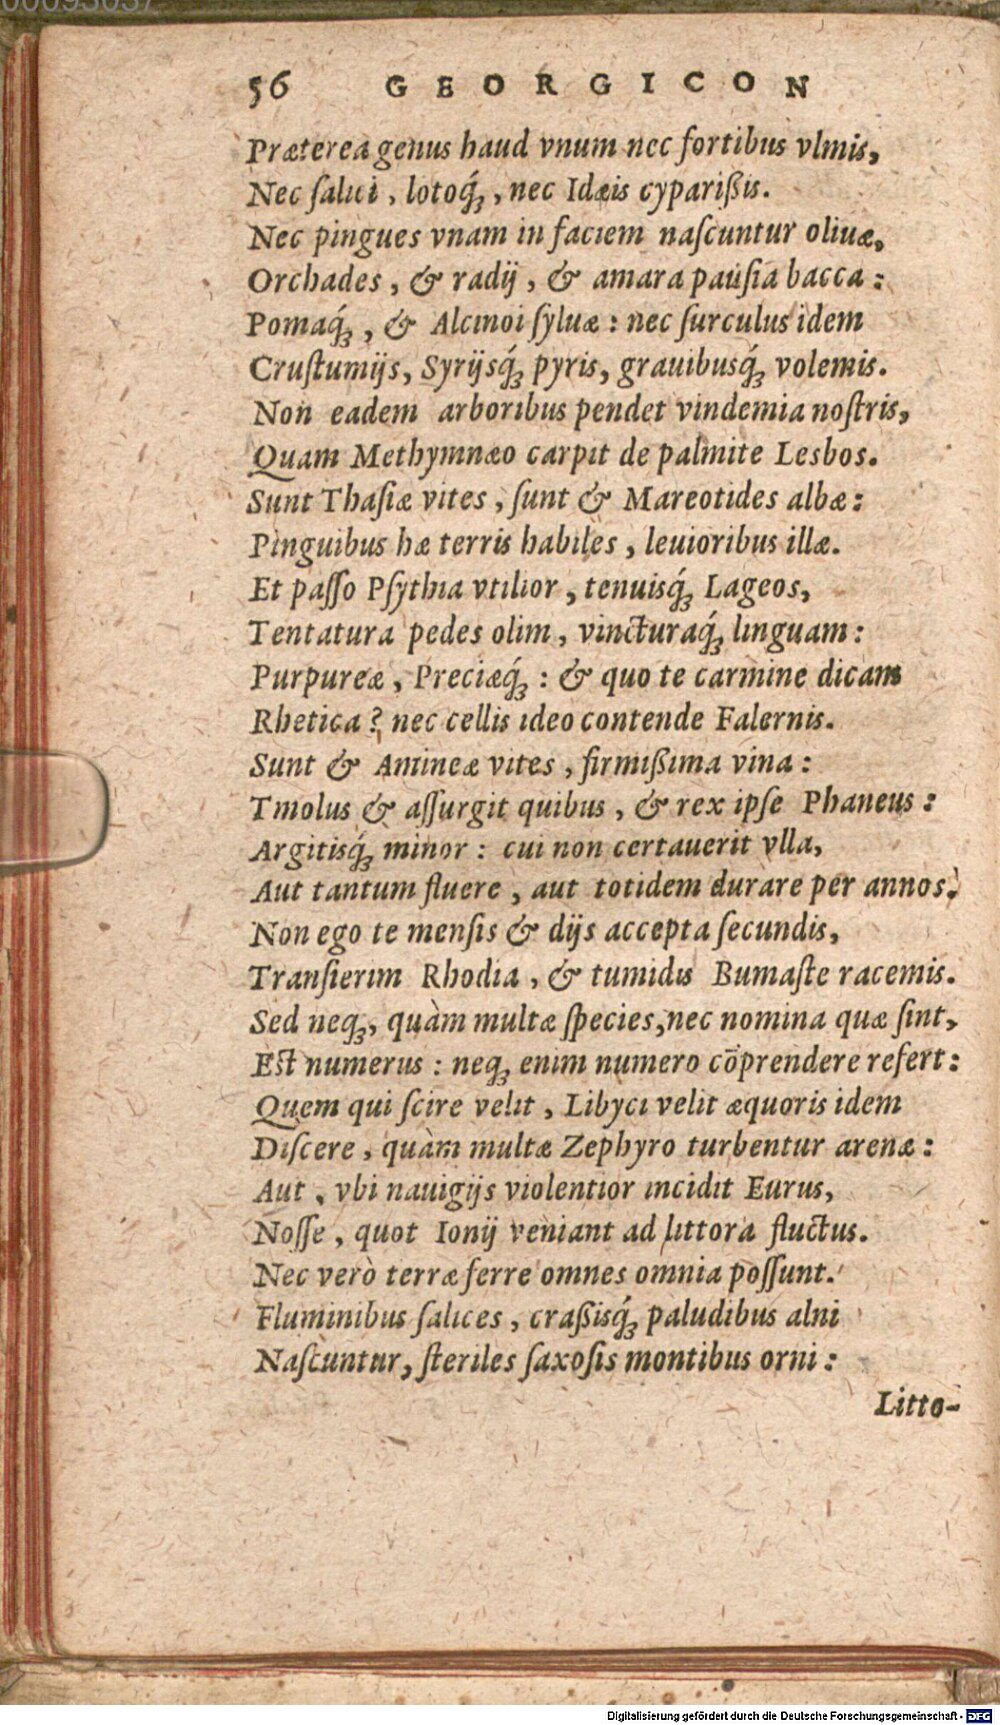 00095057
56 GEORGICON
Præterea genus haud vnum nec fortibus vlmis,
Nec salici, lotoq́;, nec Idæis cyparißis.
Nec pingues vnam in faciem nascuntur oliuæ,
Orchades, & radij, & amara pausia bacca:
Pomaq́;, & Alcinoi syluæ: nec surculus idem
Crustumijs, Syrijsq́; pyris, grauibusq́; volemis.
Non eadem arboribus pendet vindemia nostris,
Quam Methymnæo carpit de palmite Lesbos.
Sunt Thasiæ vites, sunt & Mareotides albæ:
Pinguibus hæ terris habiles, leuioribus illæ.
Et passo Psythia vtilior, tenuisq́; Lageos,
Tentatura pedes olim, vincturaq́; linguam:
Purpureæ, Preciæq́;: & quo te carmine dicam
Rhetica? nec cellis ideo contende Falernis.
Sunt & Amineæ vites, firmißima vina:
Tmolus & assurgit quibus, & rex ipse Phaneus:
Argitisq́; minor: cui non certauerit vlla,
Aut tantum fluere, aut totidem durare per annos.
Non ego te mensis & dijs accepta secundis,
Transierim Rhodia, & tumidis Bumaste racemis.
Sed neq;, quàm multæ species, nec nomina quæ sint,
Est numerus: neq; enim numero cōprendere refert:
Quem qui scire velit, Libyci velit æquoris idem
Discere, quàm multæ Zephyro turbentur arenæ:
Aut, vbi nauigijs violentior incidit Eurus,
Nosse, quot Ionij veniant ad littora fluctus.
Nec verò terræ ferre omnes omnia possunt.
Fluminibus salices, craßisq́; paludibus alni
Nascuntur, steriles saxosis montibus orni:
Litto-
Digitalisierung gefördert durch die Deutsche Forschungsgemeinschaft - DFG